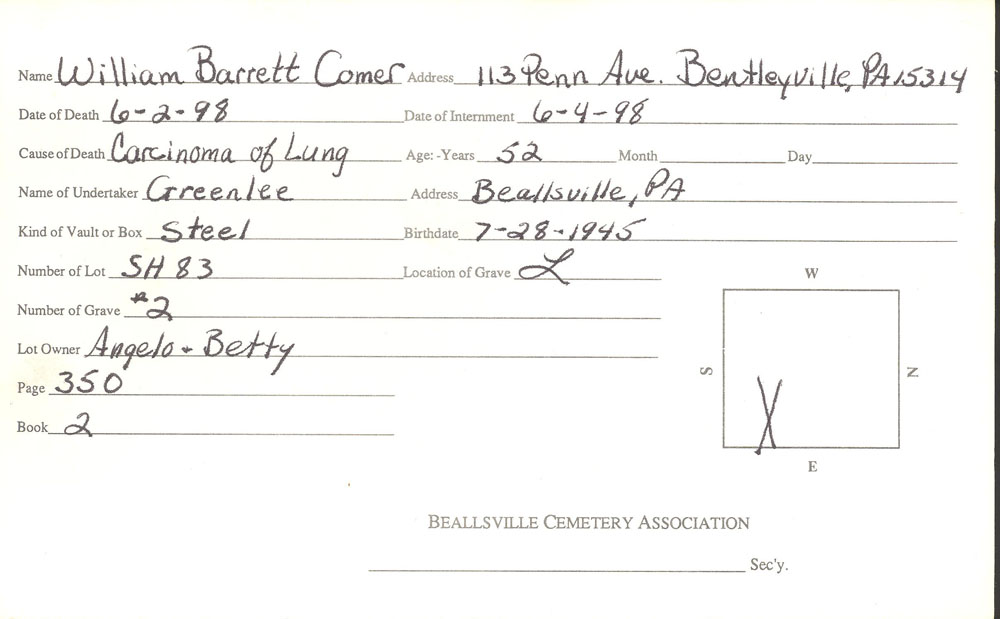 Name William Barrett Comer Address 113 Penn Ave. Bentleyville, PA 15314
Date of Death 6-2-98 Date of Internment 6-4-98
Cause of Death Carcinoma of Lung Age: -Years 52 Month Day
Name of Undertaker Greenlee Address Beallsville, PA
Kind of Vault or Box Steel Birthdate 7-28-1945
Number of Lot SH 83 Location of Grave L
Number of Grave #2
Lot Owner Angelo + Betty
Page 350
Book 2
W
S N
E
BEALLSVILLE CEMETERY ASSOCIATION
Sec'y.